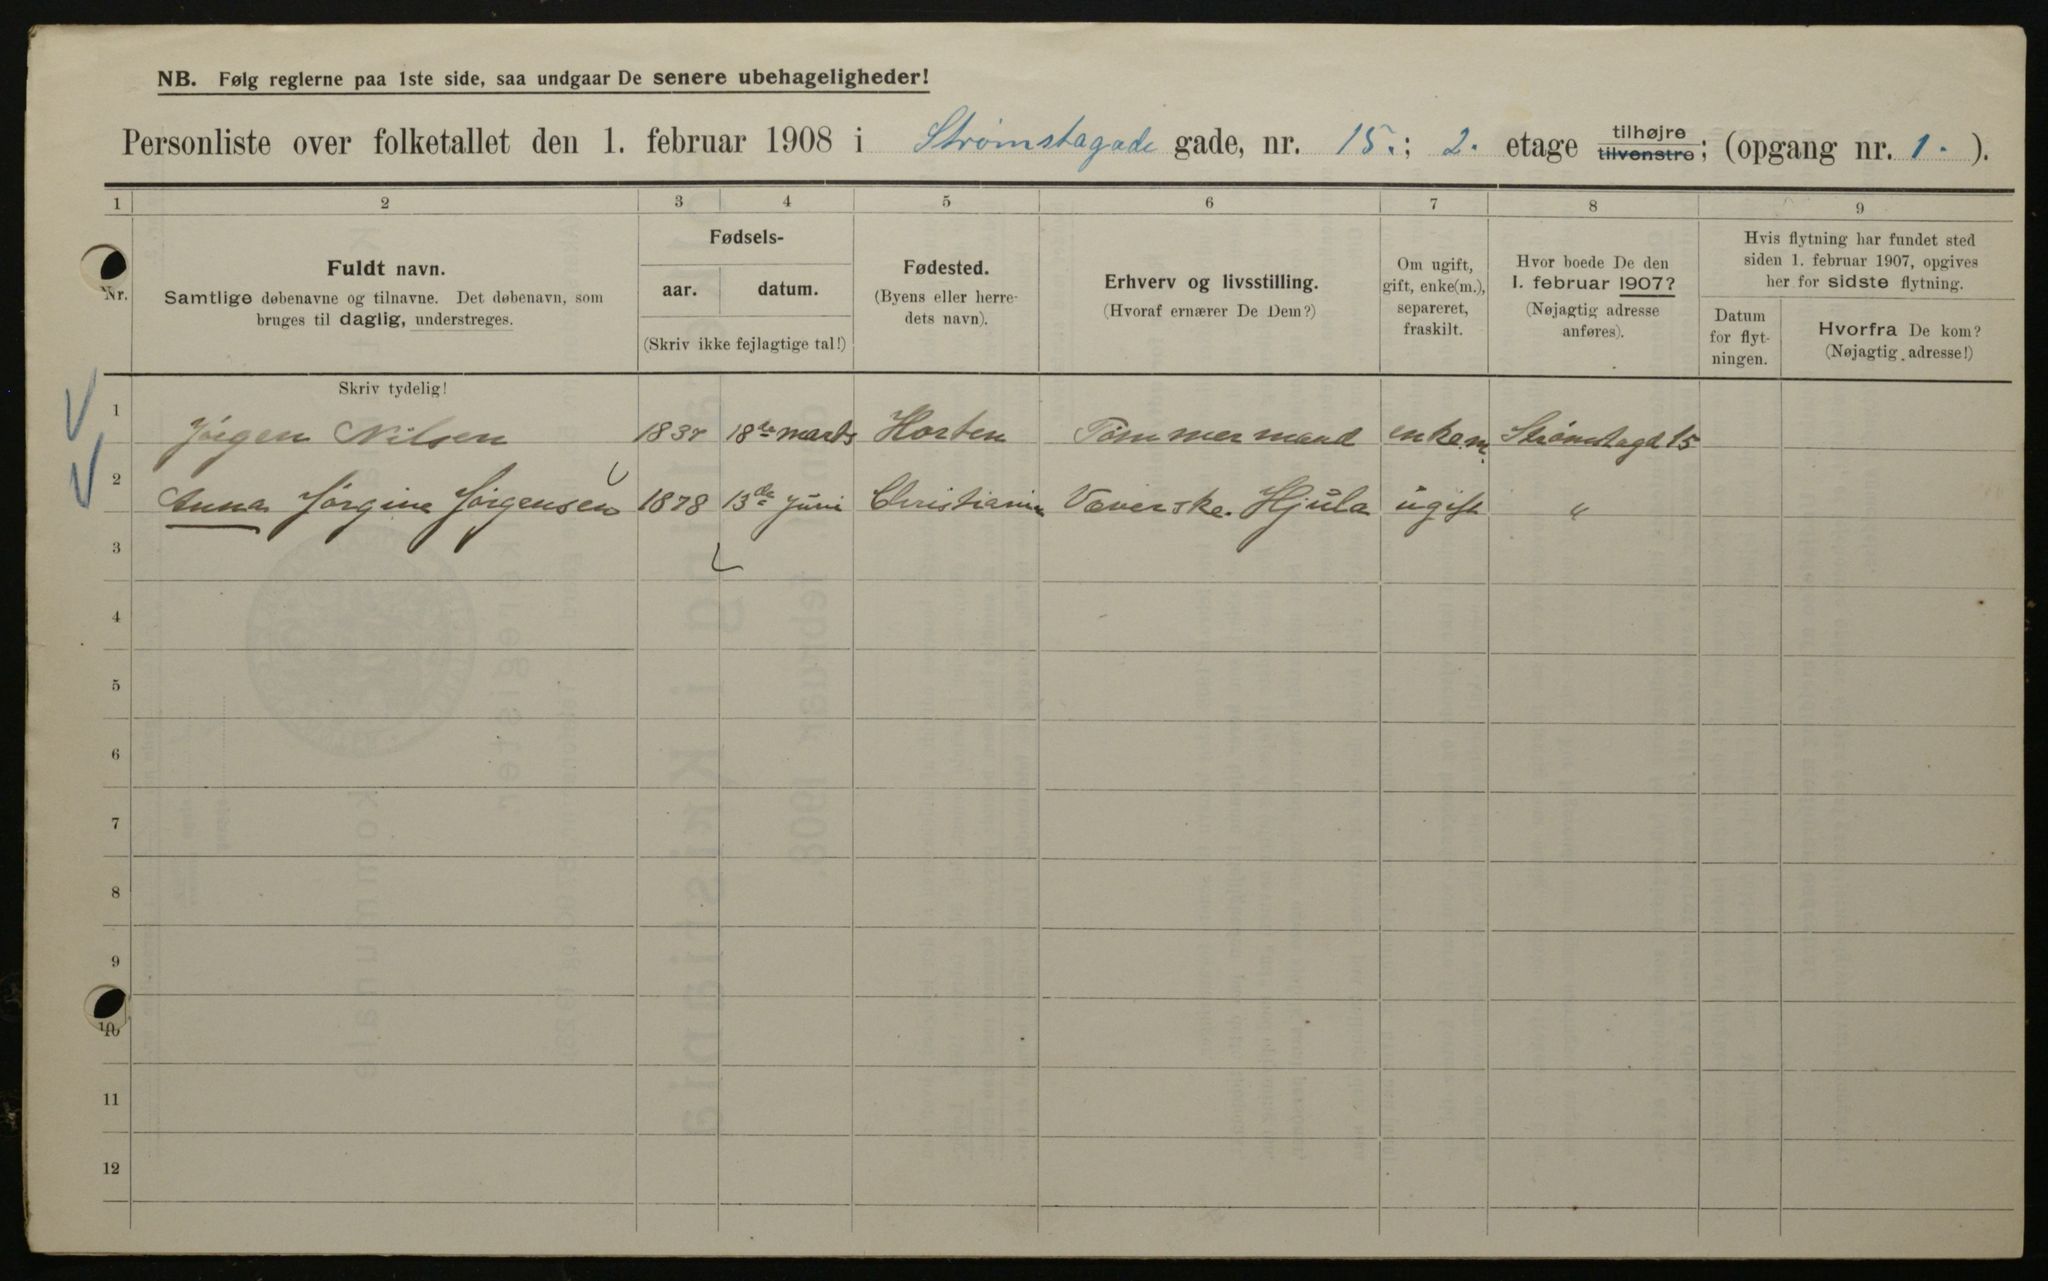 NB. Følg reglerne paa 1ste side, saa undgaar De senere ubehageligheder!
Personliste over folketallet den 1. februar 1908 i Strømstagade gade, nr. 15.; 2. etage tilhøjre tilvenstre; (opgang nr. 1. ).
1 2 3 4 5 6 7 8 9
Nr.
Fuldt navn.
Samtlige døbenavne og tilnavne. Det døbenavn, som
bruges til daglig, understreges.
Skriv tydelig!
Fødsels-
aar. datum.
(Skriv ikke fejlagtige tal!)
Fødested.
(Byens eller herre-
dets navn).
Erhverv og livsstilling.
(Hvoraf ernærer De Dem?)
Om ugift,
gift, enke(m.),
separeret,
fraskilt.
Hvor boede De den
1. februar 1907?
(Nøjagtig adresse
anføres).
Hvis flytning har fundet sted
siden 1. februar 1907, opgives
her for sidste flytning.
Datum
for flyt-
ningen.
Hvorfra De kom?
(Nøjagtig adresse!)
1 Jørgen Nilsen 18de marts Horten Tømmermand enkem. Strømstagd 15
2 Anna Jørgine Jørgensen 1878 13de Juni Christiania Væverske. Hjula ugift "
3
4
5
6
7
8
9
10
11
12